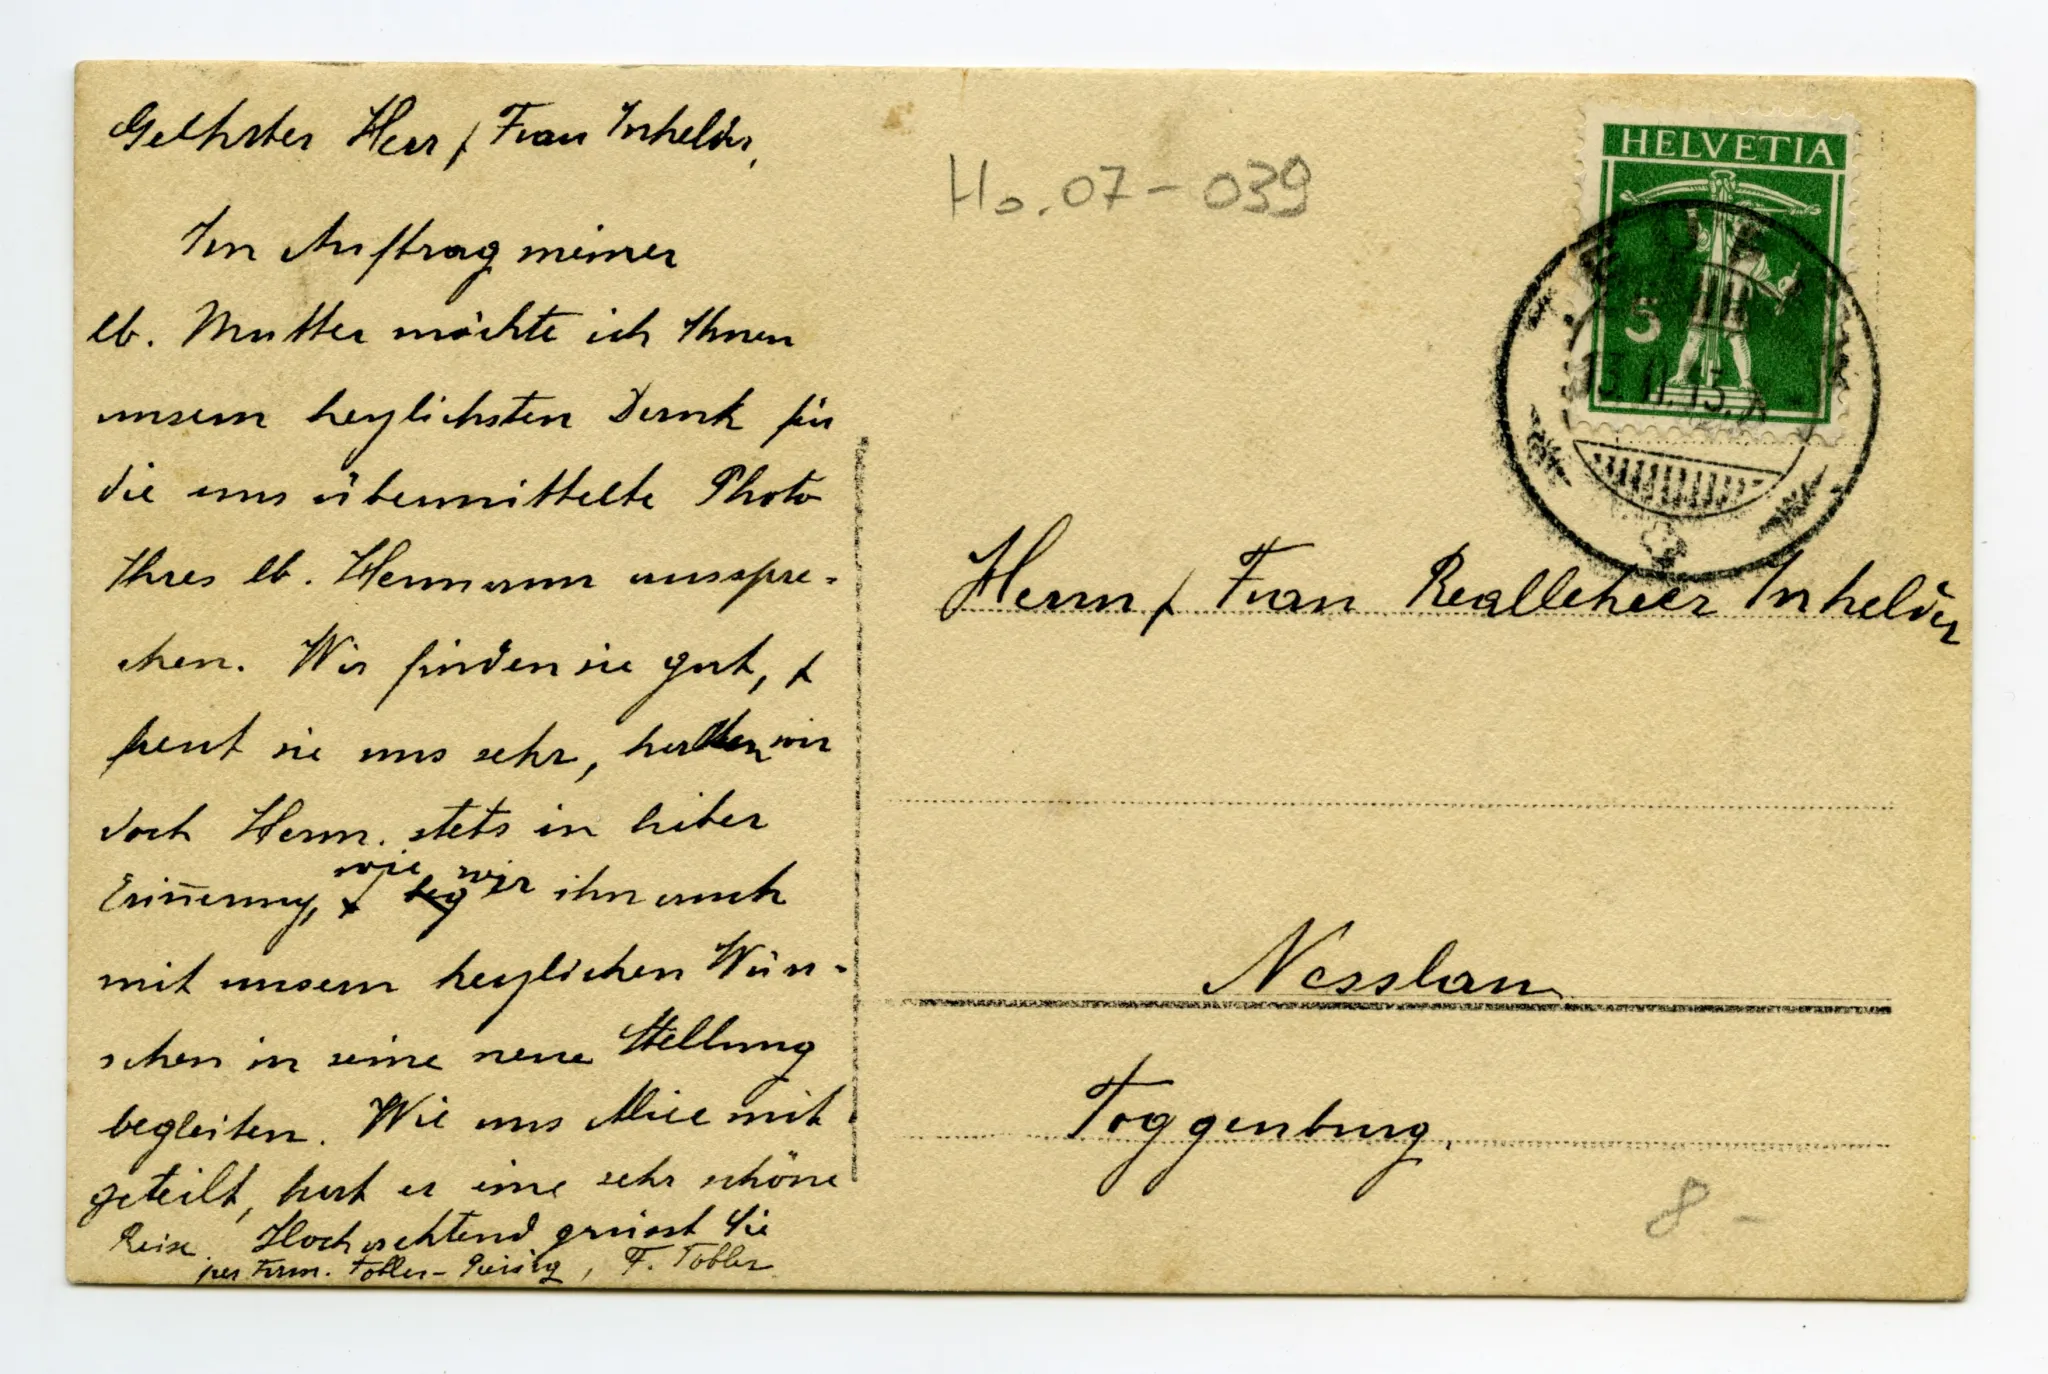 Geehrter Herr & Frau Inhelder,
Im Auftrag meiner
lb. Mutter möchte ich Ihnen
unsern herzlichsten Dank für
die uns übermittelte Photo
Ihres lb. Hermann ausspre-
chen. Wir finden sie gut, &
freut sie uns sehr, halten wir
doch Herm. stets in lieber
Erinnerung, wie wir ihn auch
mit unsern herzlichen Wün-
schen in seine neue Stellung
begleiten. Wie uns Alice mit
geteilt, hat er eine sehr schöne
Reise. Hochachtend grüsst Sie
per Fam. Tobler- F. Tobler
Ho. 07-039
HELVETIA
5
13. II. 13.
Herrn & Frau Reallehrer Inhelder
Nesslau
Toggenburg.
8.-